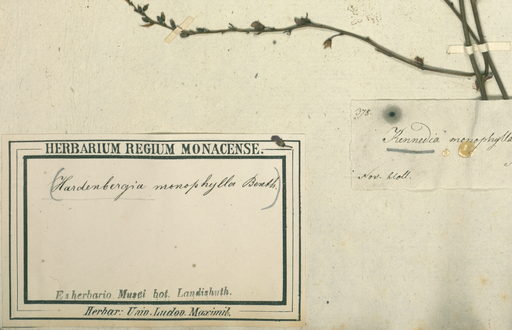 HERBARIUM REGIUM MONACENSE.
(Hardenbergia monophylla Benth.)
Ex herbario Musei bot. Landishuth.
Herbar: Univ. Ludov. Maximil.
378.
Kennedia monophylla
Nov. Holl.